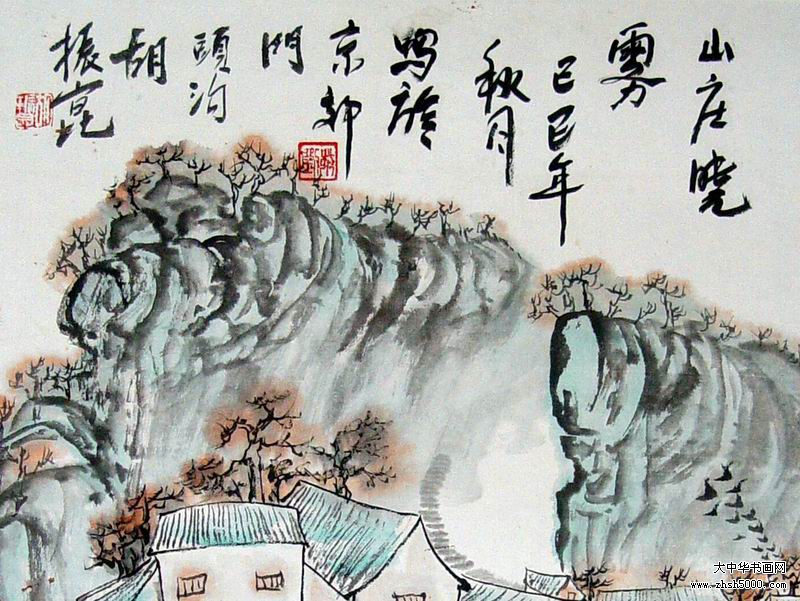 山庄晓
雾
己巳年
秋月
写于
京郊
门
头沟
胡
振昆
大中华书画网
www.zhsh5000.com